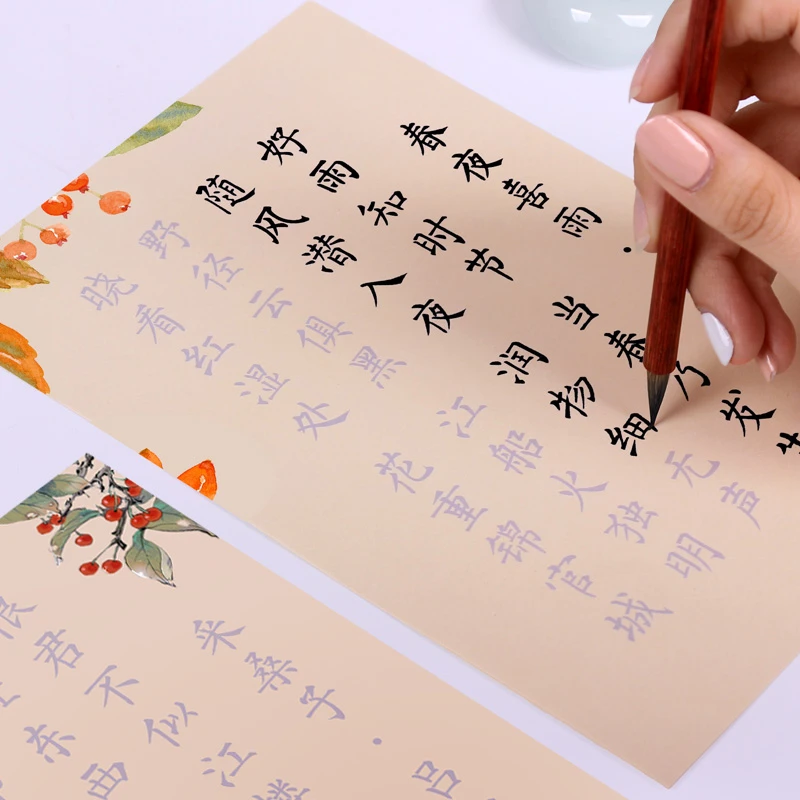 春夜喜雨·
好雨知时节 当春乃发生
随风潜入夜 润物细无声
野径云俱黑 江船火独明
晓看红湿处 花重锦官城
采桑子·吕
恨君不似江楼
东西